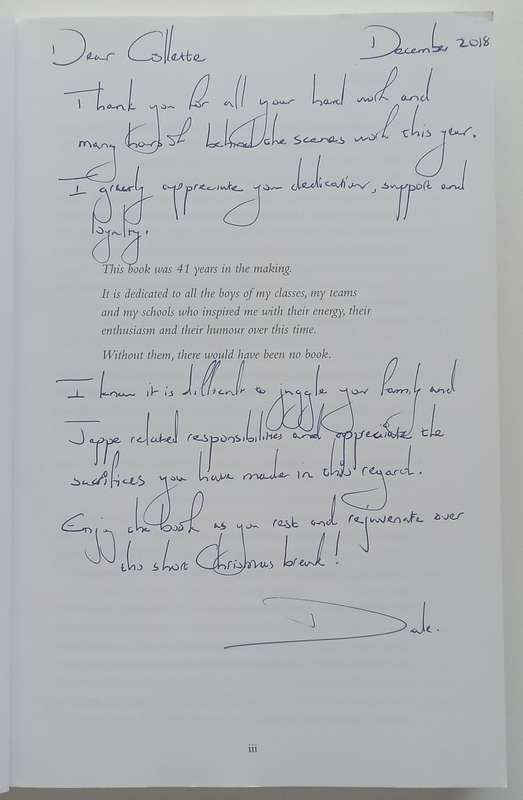 Dear Collette December 2018
Thank you for all your hard work and
many hours of behind the scenes work this year.
I greatly appreciate your dedication, support and
loyalty.
This book was 41 years in the making.
It is dedicated to all the boys of my classes, my teams
and my schools who inspired me with their energy, their
enthusiasm and their humour over this time.
Without them, there would have been no book.
I know it is difficult to juggle your family and
Jeppe related responsibilities and appreciate the
sacrifices you have made in this regard.
Enjoy the book as you rest and rejuvenate over
the short Christmas break!
Dale.
iii